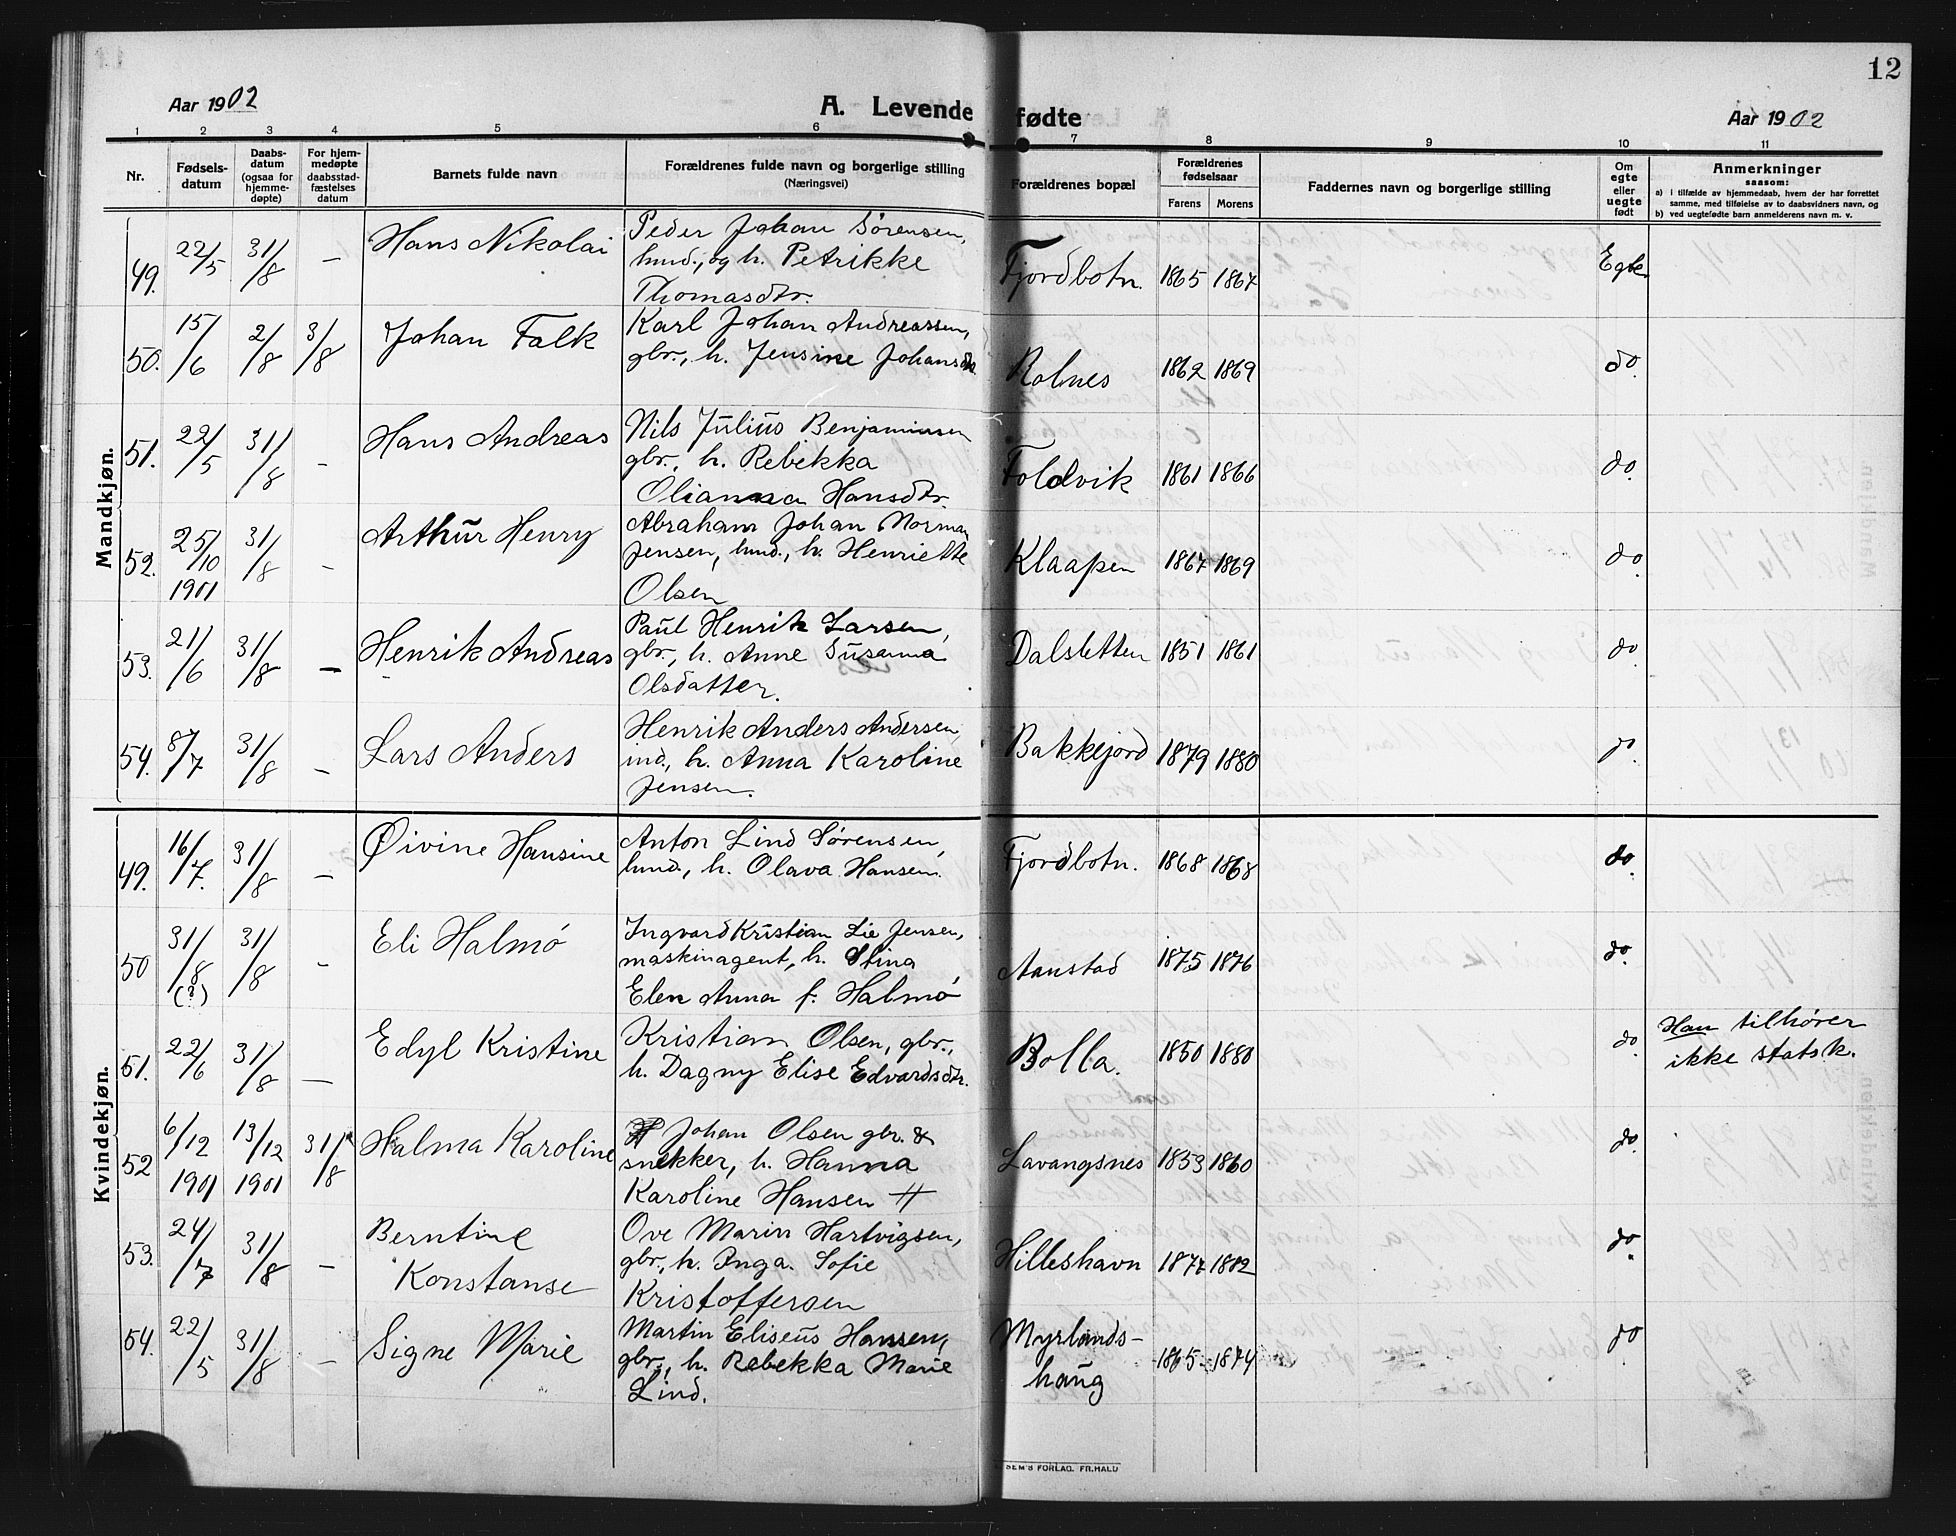 Aar 1902
A. Levende fødte
Aar 1902
12
1 2 3 4 5 6 7 8 9 10 11
Nr.
Fødsels-
datum
Daabs-
datum
(ogsaa for
hjemme-
døpte)
For hjem-
medøpte
daabsstad-
fæstelses
datum
Barnets fulde navn
Forældrenes fulde navn og borgerlige stilling
(Næringsvei)
Forældrenes bopæl
Forældrenes
fødselsaar
Farens Morens
Faddernes navn og borgerlige stilling
Om
egte
eller
uegte
født
Anmerkninger
saasom:
a) i tilfælde av hjemmedaab, hvem der har forrettet
samme, med tilføielse av to daabsvidners navn, og
b) ved uegtefødte barn anmelderens navn m. v.
Mandkjøn.
49. 22/5 31/8 – Hans Nikolai Peder Johan Sørensen,
hmd., og h. Petrikke
Thomasdtr. Fjordbotn. 1865 1867 Egte
50. 15/6 2/8 3/8 Johan Falk Karl Johan Andreassen,
gbr., h. Jensine Johansdtr. Rolnes 1862 1869 do.
51. 22/5 31/8 – Hans Andreas Nils Julius Benjaminsen
gbr., h. Rebekka
Olianna Hansdtr. Foldvik 1861 1866 do.
52. 25/10 1901 31/8 – Arthur Henry Abraham Johan Norman
Jensen, hmd., h. Henriette
Olsen Klaapen 1867 1869 do.
53. 21/6 31/8 – Henrik Andreas Paul Henrik Larsen,
gbr., h. Anne Susanna
Olsdatter. Dalsletten 1851 1861 do.
54. 8/7 31/8 – Lars Anders Henrik Anders Andersen,
ind., h. Anna Karoline
Jensen. Bakkejord 1879 1880 do.
Kvindekjøn.
49. 16/7. 31/8 – Øivine Hansine Anton Lind Sørensen,
hmd., h. Olava Hansen. Fjordbotn. 1868 1868 do.
50 31/8 (?) 31/8 – Eli Halmø Ingvard Kristian Lie Jensen,
maskinagent, h. Stina
Elen Anna f. Halmø Aanstad 1875 1876 do.
51. 22/6 31/8 – Edyl Kristine Kristian Olsen, gbr.,
h. Dagny Elise Edvardsdtr. Bolla. 1850 1880 do. Han tilhører
ikke statsk.
52 6/12 1901 13/12 1901 31/8 Halma Karoline Johan Olsen gbr. &
snekker, h. Hanna
Karoline Hansen # Lavangsnes 1853 1860 do.
53. 24/7 31/8 – Berntine
Konstanse Ove Marin Hartvigsen,
gbr., h. Inga. Sofie
Kristoffersen Hilleshavn 1877 1882 do.
54. 22/5 31/8 – Signe Marie Martin Eliseus Hansen,
gbr., h. Rebekka Marie
Lind. Myrlands-
haug 1865 1874 do.
SEM'S FORLAG. FR.HALD